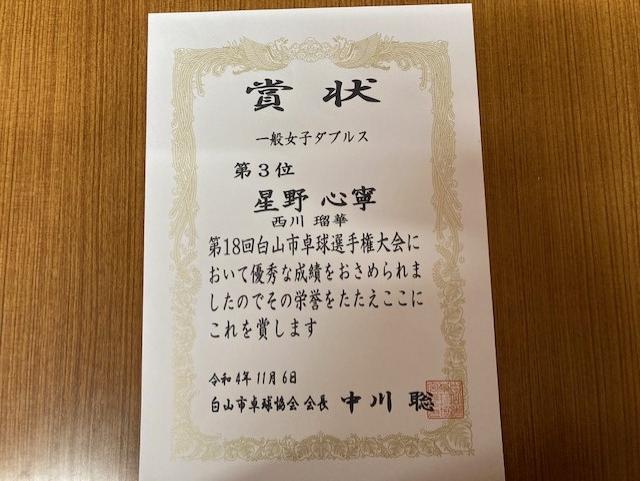 賞状
一般女子ダブルス
第3位
星野 心寧
西川 瑠華
第18回白山市卓球選手権大会に
おいて優秀な成績をおさめられま
したのでその栄誉をたたえここに
これを賞します
令和4年11月6日
白山市卓球協会 会長 中川 聡